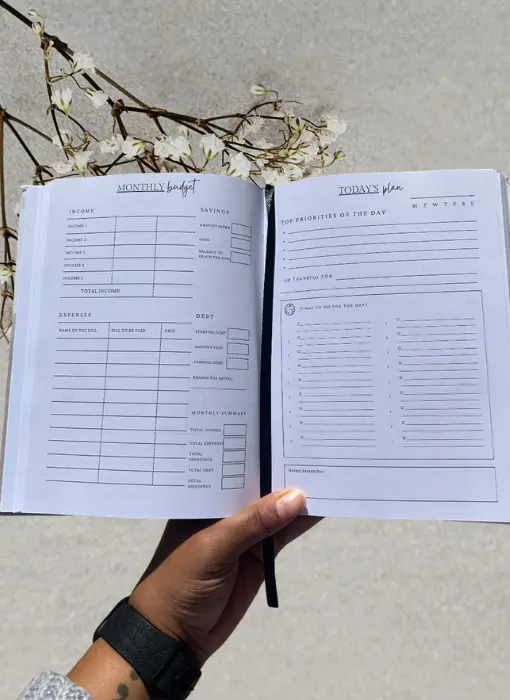 MONTHLY budget
INCOME
INCOME 1
INCOME 2
INCOME 3
INCOME 4
INCOME 5
TOTAL INCOME
SAVINGS
AMOUNT SAVED
GOAL
BALANCE TO
REACH THE GOAL
EXPENSES
NAME OF THE BILL BILL TO BE PAID PAID
DEBT
STARTING DEBT
AMOUNT PAID
PENDING DEBT
REASON FOR SAVING:
MONTHLY SUMMARY
TOTAL INCOME
TOTAL EXPENSES
TOTAL
SPENDINGS
TOTAL DEBT
TOTAL
SPENDINGS
TODAY'S plan
M T W T F S S
TOP PRIORITIES OF THE DAY
I AM THANKFUL FOR
THING TO DO FOR THE DAY!
Notes/Remember